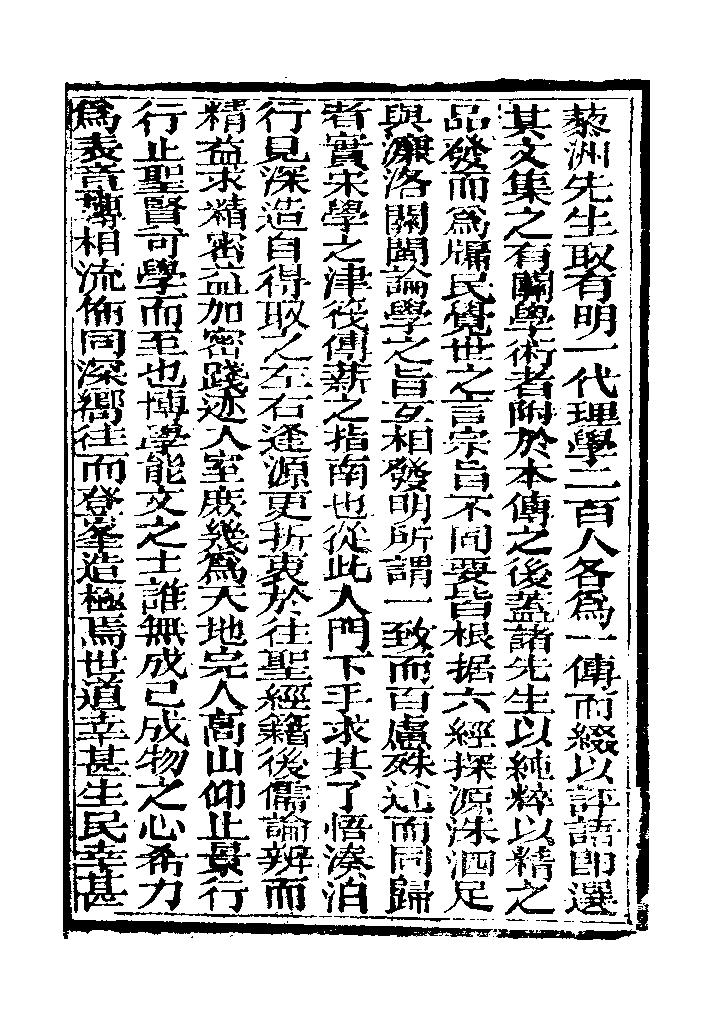 蔾洲先生取有明一代理學二百人各爲一傳而綴以評語卽選
其文集之有關學術者附於本傳之後蓋諸先生以純粹以精之
品發而爲牖民覺世之言宗旨不同要皆根据六經探源洙泗足
與濂洛關閩論學之旨互相發明所謂一致而百慮殊途而同歸
者實宋學之津筏傳薪之指南也從此入門下手求其了悟湊泊
行見深造自得取之左右逢源更折衷於往聖經籍後儒論辨而
精益求精密益加密踐迹入室庶幾爲天地完人高山仰止景行
行止聖賢可學而至也博學能文之士誰無成己成物之心希力
爲表章薄相流佈同深嚮往而登峯造極焉世道幸甚生民幸甚